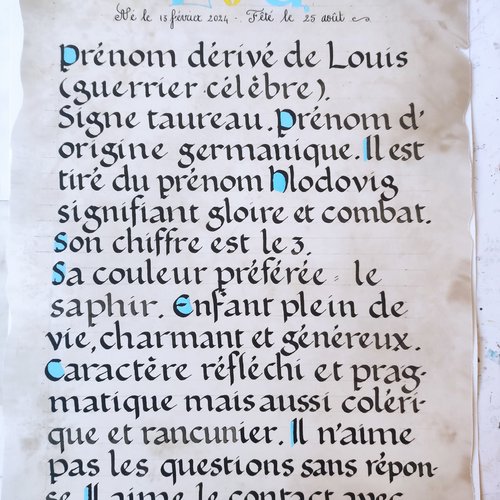 Né le 15 février 2024 - Fêté le 25 août
Prénom dérivé de Louis
(guerrier célèbre).
Signe taureau. Prénom d'
origine germanique. Il est
tiré du prénom Hlodovig
signifiant gloire et combat.
Son chiffre est le 3.
Sa couleur préférée = le
saphir. Enfant plein de
vie, charmant et généreux.
Caractère réfléchi et prag-
matique mais aussi coléri-
que et rancunier. Il n'aime
pas les questions sans répon-
se. Il aime le contact avec